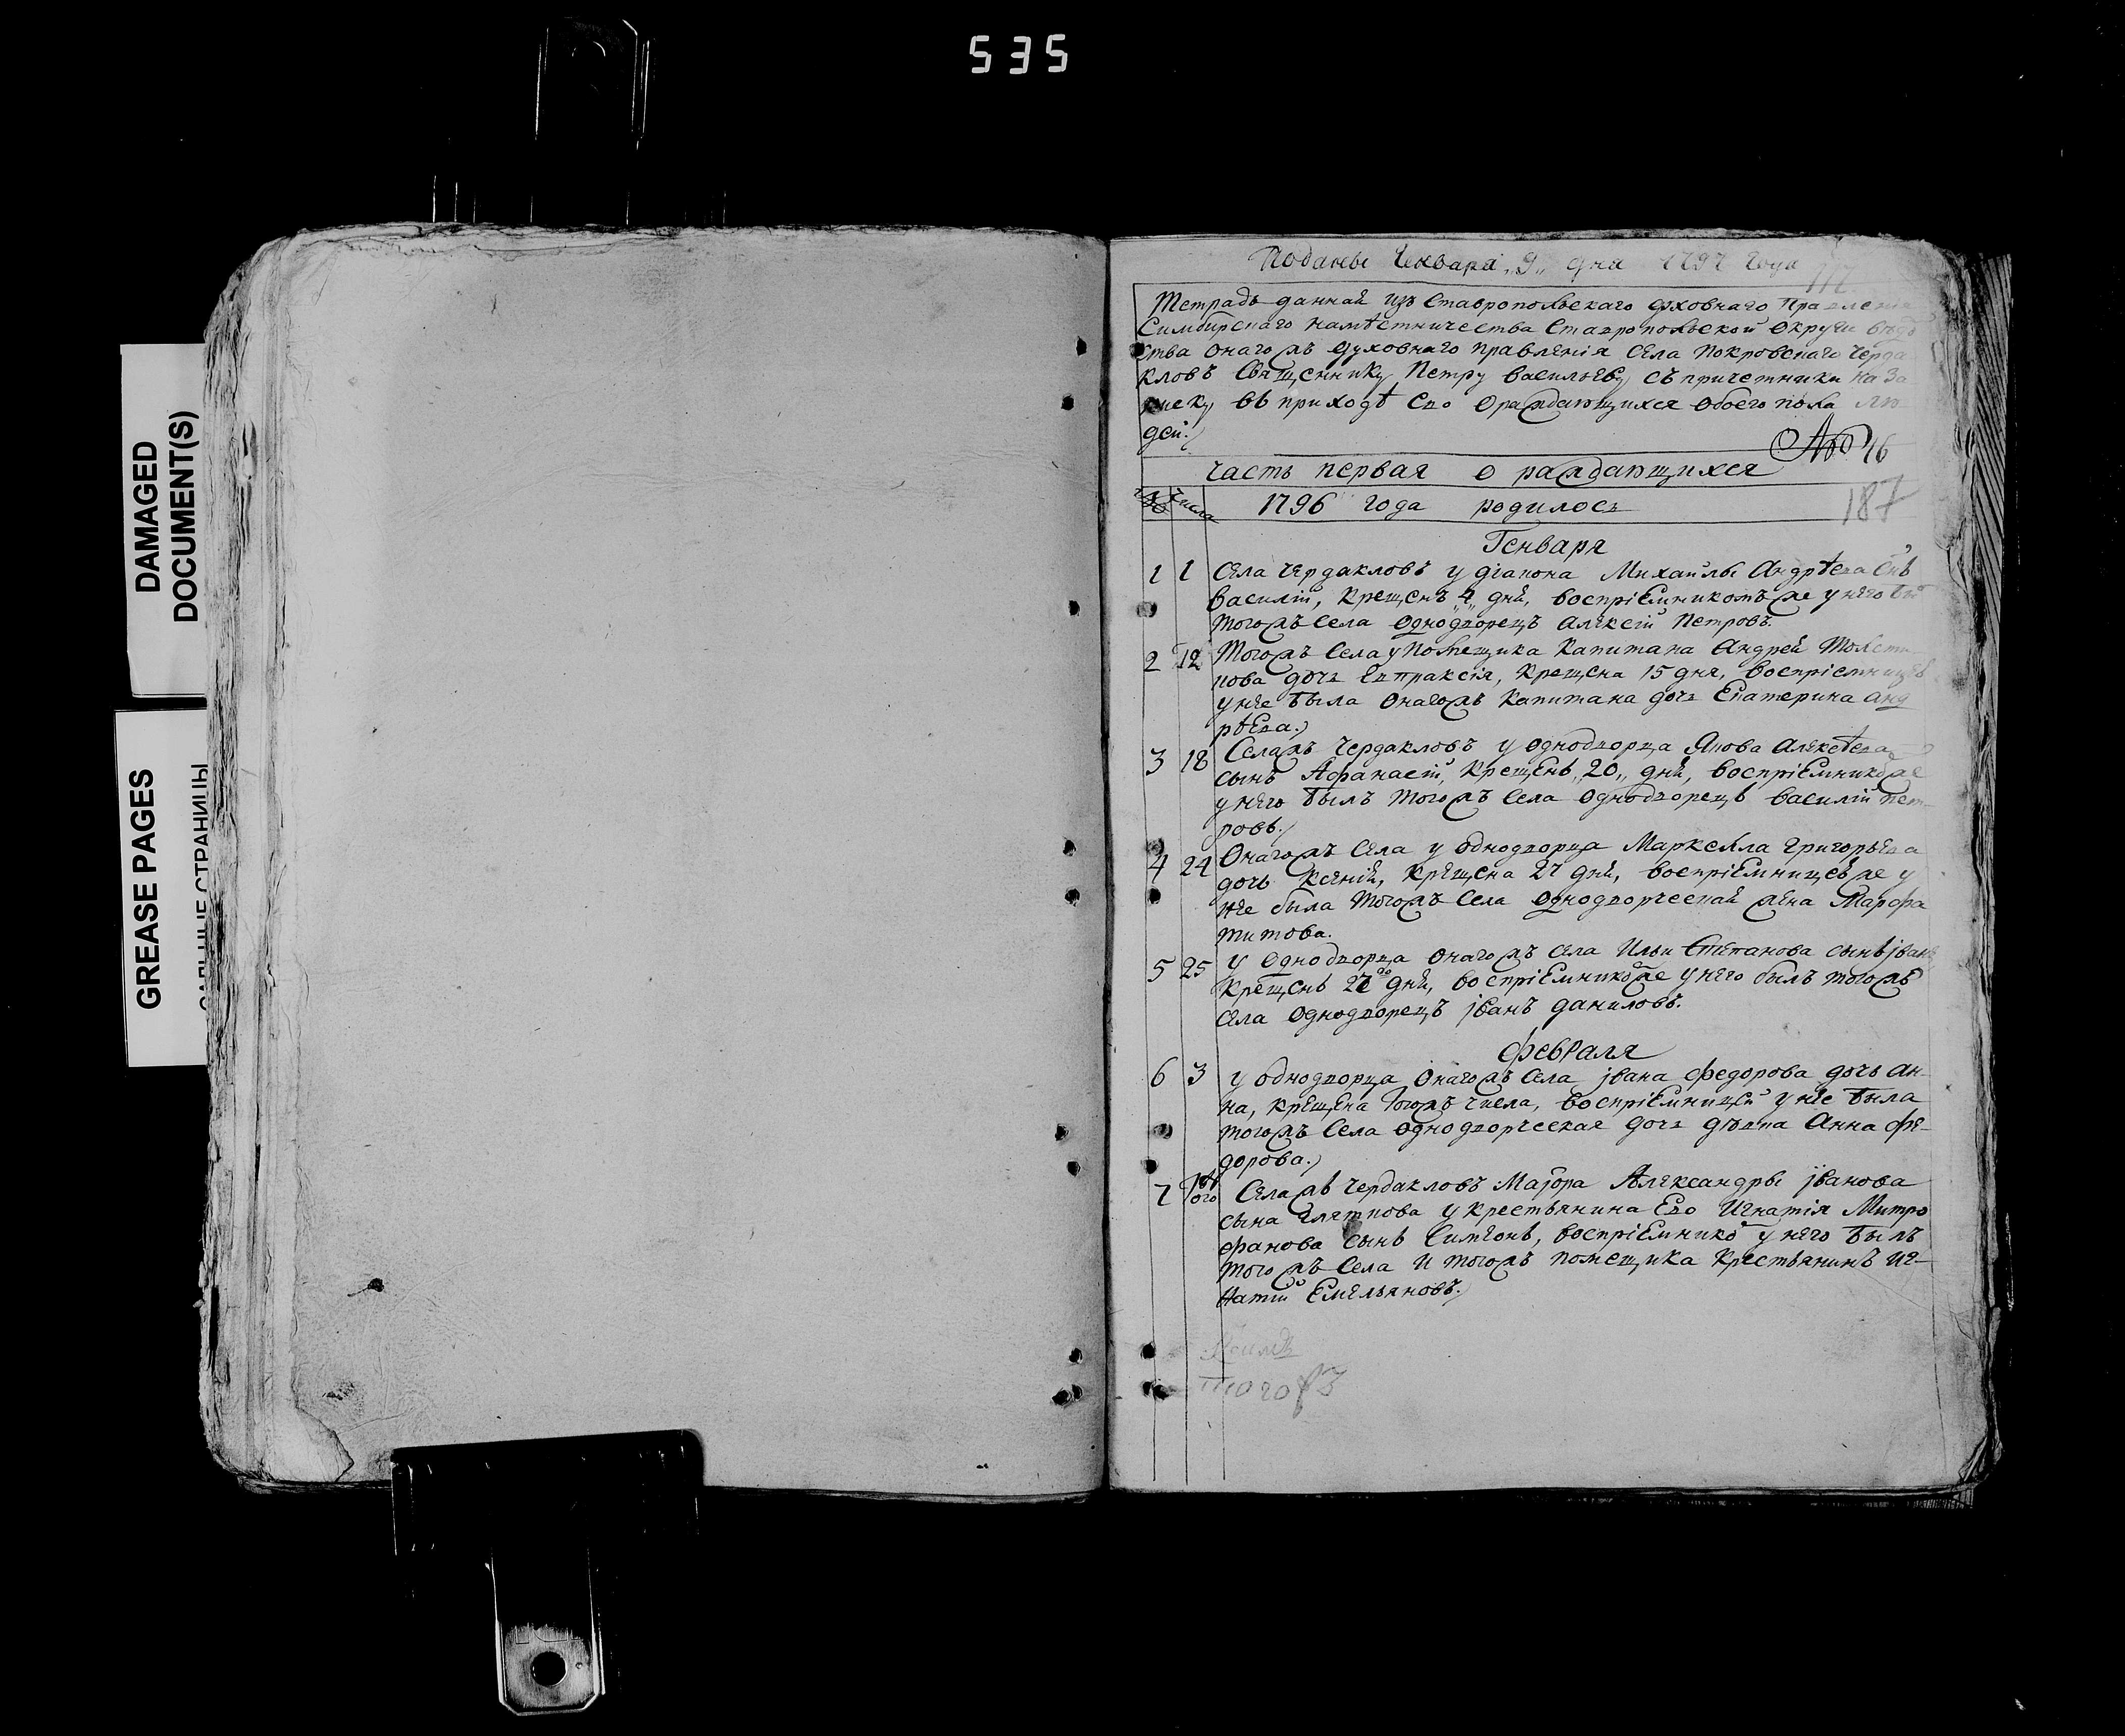 535
DAMAGED
DOCUMENT(S)
GREASE PAGES
СТРАНИЦЫ
Поданы Генваря „9„ дня 1797 года
Тетрадь данная изъ Ставропольскаго духовнаго Правления
Симбирскаго намѣстничества Ставропольской округи вѣдом
ства онагожъ духовнаго правленія села Покровскаго Черда
кловъ Священнику Петру Васильеву съ причетники на за
писку въ приходѣ ево о раждающихся обоего пола лю
дей.
16
часть первая о раждающихся
числа
1796 года родилось
187
Генваря
1 1 Села Чердакловъ у діакона Михаилы Андрѣева снъ
Василій, крещенъ „4„ дня, воспріемникомъ же у него бы
тогожъ села однодворецъ Алексій Петровъ.
2 12 Тогожъ села у помещика капитана Андрей
дочь Евпраксія, крещена 15 дня, воспріемницею
у нее была онагожъ капитана дочь Екатерина Анд
рѣева.
3 18 Селажъ Чердакловъ у однодворца Якова Алексѣева
сынъ Афанасій, крещенъ „20„ дня, воспріемникоже
у него былъ тогожъ села однодворецъ Василій Пет
ровъ.
4 24 Онагожъ села у однодворца Маркелла Григорьева
дочь Ксенія, крещена 27 дня, воспріемницею же у
нее была тогожъ села однодворческая жена Марфа
Титова.
5 25 у однодворца онагожъ села Ильи Степанова сынъ Іванъ
крещенъ 27го дня, воспріемникоже у него былъ тогожъ
села однодворецъ Іванъ Даниловъ.
февраля
6 3 у однодворца онагожъ села Івана Федорова дочь Ан-
на, крещена тогожъ числа, воспріемницей у нее была
тогожъ села однодворческая дочь дѣвка Анна Фе-
дорова.
7 Тогожъ Селажъ Чердакловъ Маіора Александры Іванова
сына у крестьянина ево Игнатія Митро
фанова сынъ Симеонъ, воспріемнико у него былъ
тогожъ села и тогожъ помещика крестьянинъ Иг-
натій Емельяновъ.